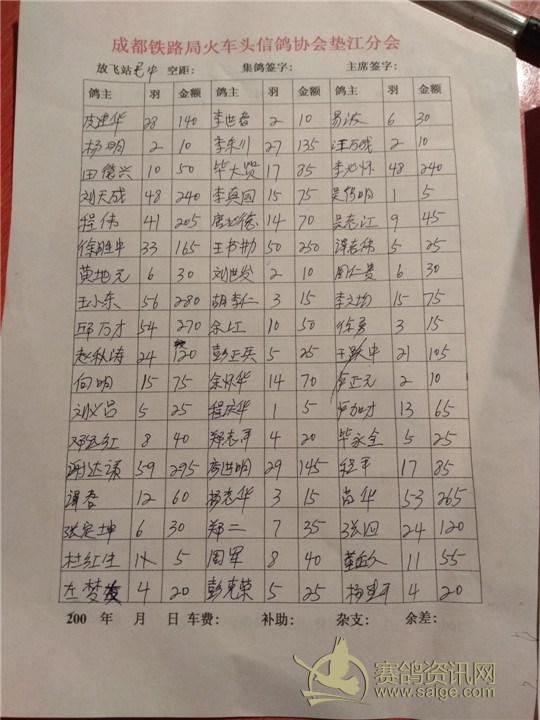 成都铁路局火车头信鸽协会垫江分会
放飞站 空距： 集鸽签字： 主席签字：
鸽主 羽 金额 鸽主 羽 金额 鸽主 羽 金额
28 140 2 10 6 30
杨明 2 10 李东川 27 135 汪万成 2 10
田儒兴 10 50 毕大贤 17 85 48 240
刘天成 48 240 李真国 15 75 吴传明 1 5
程伟 41 205 14 70 吴志江 9 45
徐胜中 33 165 50 250 5 25
黄地元 6 30 刘世发 2 10 周仁贵 6 30
王小东 56 280 胡李仁 3 15 15 75
邱万才 54 270 余江 10 50 3 15
赵秋涛 24 120 彭正兵 5 25 王跃中 21 105
向明 15 75 余怀华 14 70 卢正元 2 10
5 25 程庆华 1 5 13 65
8 40 郑志平 4 20 毕家全 5 25
谢达谦 59 295 29 145 程平 17 85
谭香 12 60 杨志华 3 15 53 265
张定坤 6 30 郑二 7 35 张四 24 120
5 周军 8 40 11 55
4 20 彭克荣 5 25 4 20
200 年 月 日 车费： 补助： 杂支： 余差：
赛鸽资讯网
www.saige.com